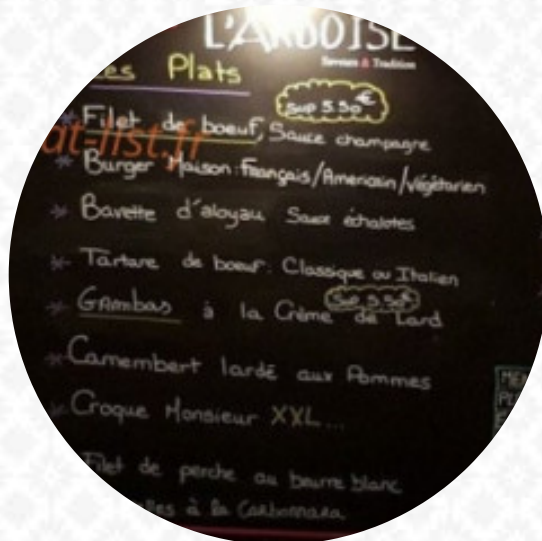 L'ARBOISE
Saveurs & Tradition
es Plats
Sup 5.50€
Filet de boeuf, Sauce champagne
at-list.fr
Burger Maison: Français/Americain/Végétarien
Bavette d'aloyau Sauce échalotes
Tartare de boeuf: Classique ou Italien
Sup 5.50€
Gambas à la Crème de Lard
Camembert lardé aux Pommes
Croque Monsieur XXL...
Filet de perche au beurre blanc
lles à la Carbonara